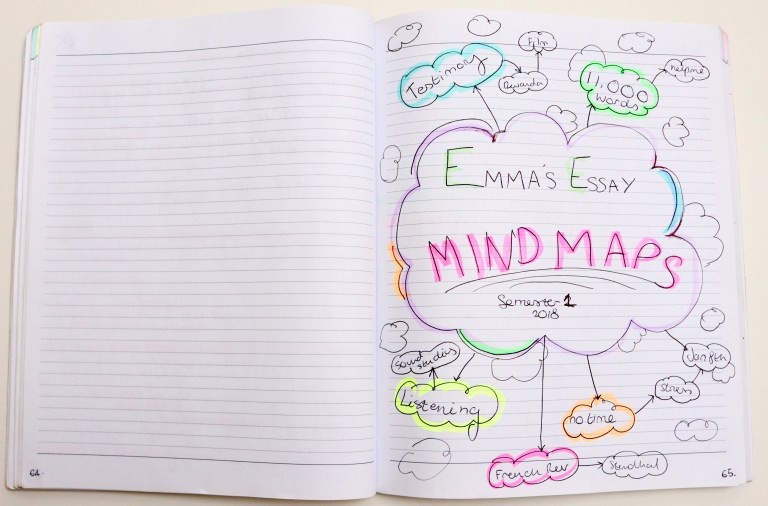 Film
Testimony
Rwanda
11,000
words
helpme
EMMA'S ESSAY
MIND MAPS
Semester 1
2018
Sound
studies
Jan 8th
Listening
stress
no time
French Rev
Stendhal
64.
65.